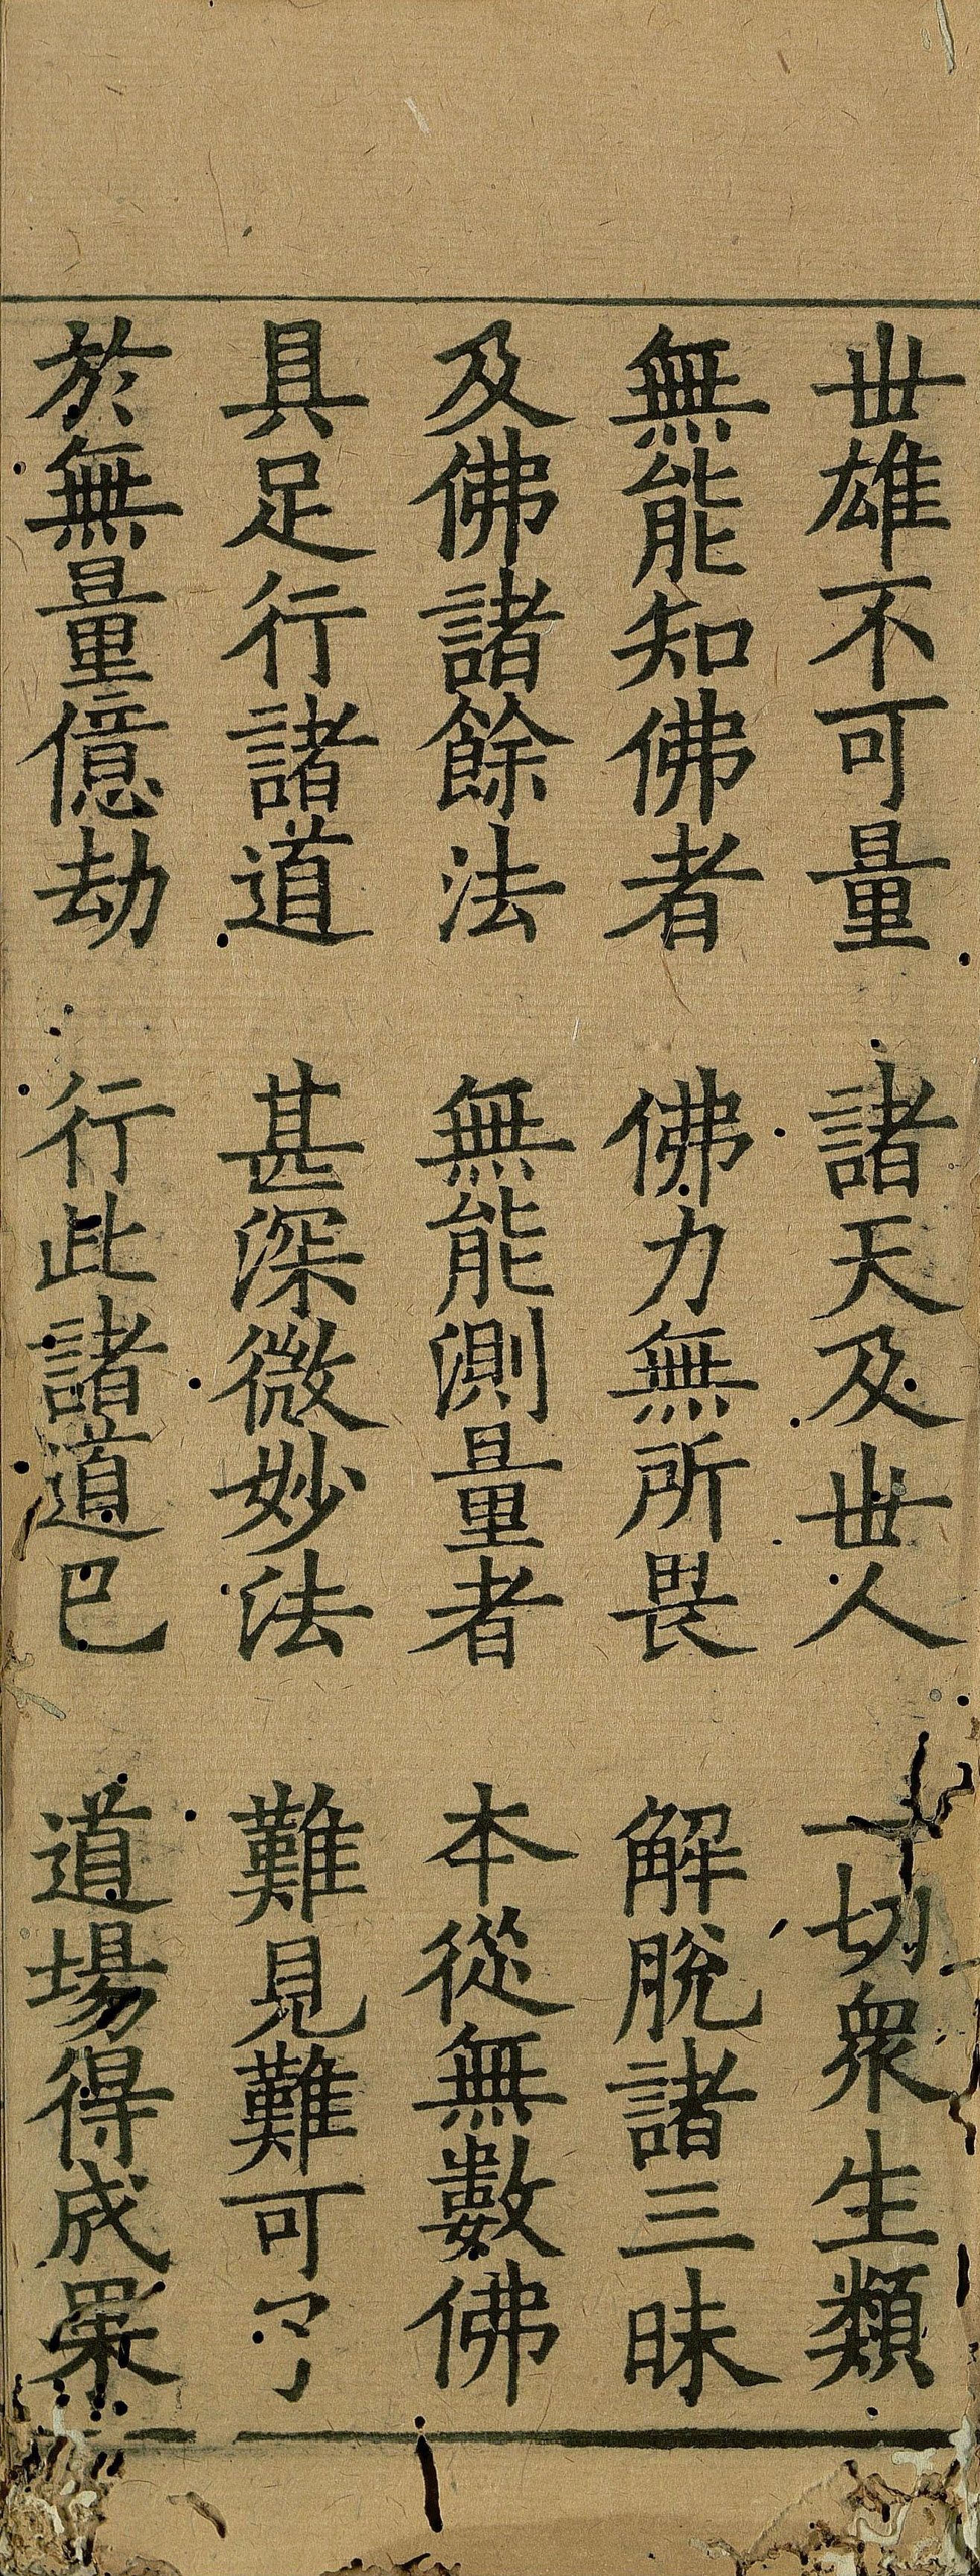 世雄不可量 諸天及世人 一切衆生類
無能知佛者 佛力無所畏 解脫諸三昧
及佛諸餘法 無能測量者 本從無數佛
具足行諸道 甚深微妙法 難見難可了
於無量億劫 行此諸道已 道場得成果